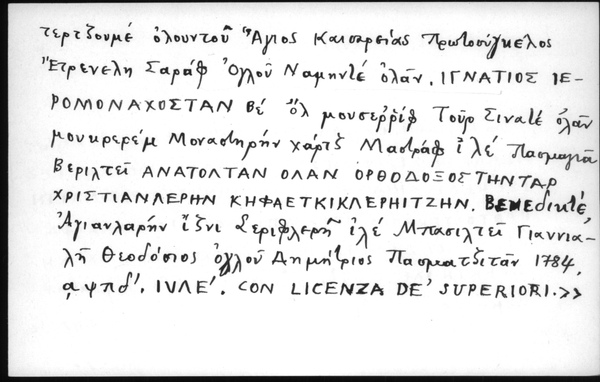 τερτζουμὲ ὀλουντοῦ Ἅγιος Καισαρείας Πρωτοσύγκελος
Ἔτρενελη Σαράφ Ὀγλοῦ Ναμηντὲ ὀλάν, ΙΓΝΑΤΙΟΣ ΙΕ-
ΡΟΜΟΝΑΧΟΣΤΑΝ Βέ ὂλ μουσερρὶφ Τοῦρ Σινατὲ ὀλὰν
μουκρερέμ Μοναστηρὴν χάρτζ Μαστράφ ἰλέ Πασμαγιὰ
Βεριλτεῖ ΑΝΑΤΟΛΤΑΝ ΟΛΑΝ ΟΡΘΟΔΟΞΟΣΤΗΝΤΑΡ
ΧΡΙΣΤΙΑΝΛΕΡΗΝ ΚΗΦΑΕΤΚΙΚΛΕΡΗΙΤΖΗΝ. ΒΕΝΕdικτὲ,
Ἁγιανλαρήν ἴζνι Σεριφλερῆ ἰλέ Μπασιλτεῖ Γιαννια-
λῆ Θεοδόσιος ὀγλοῦ Δημήτριος Πασματζιτὰν 1784,
͵αψπδ΄. IVLE΄. CON LICENZA DE΄ SUPERIORI.>>